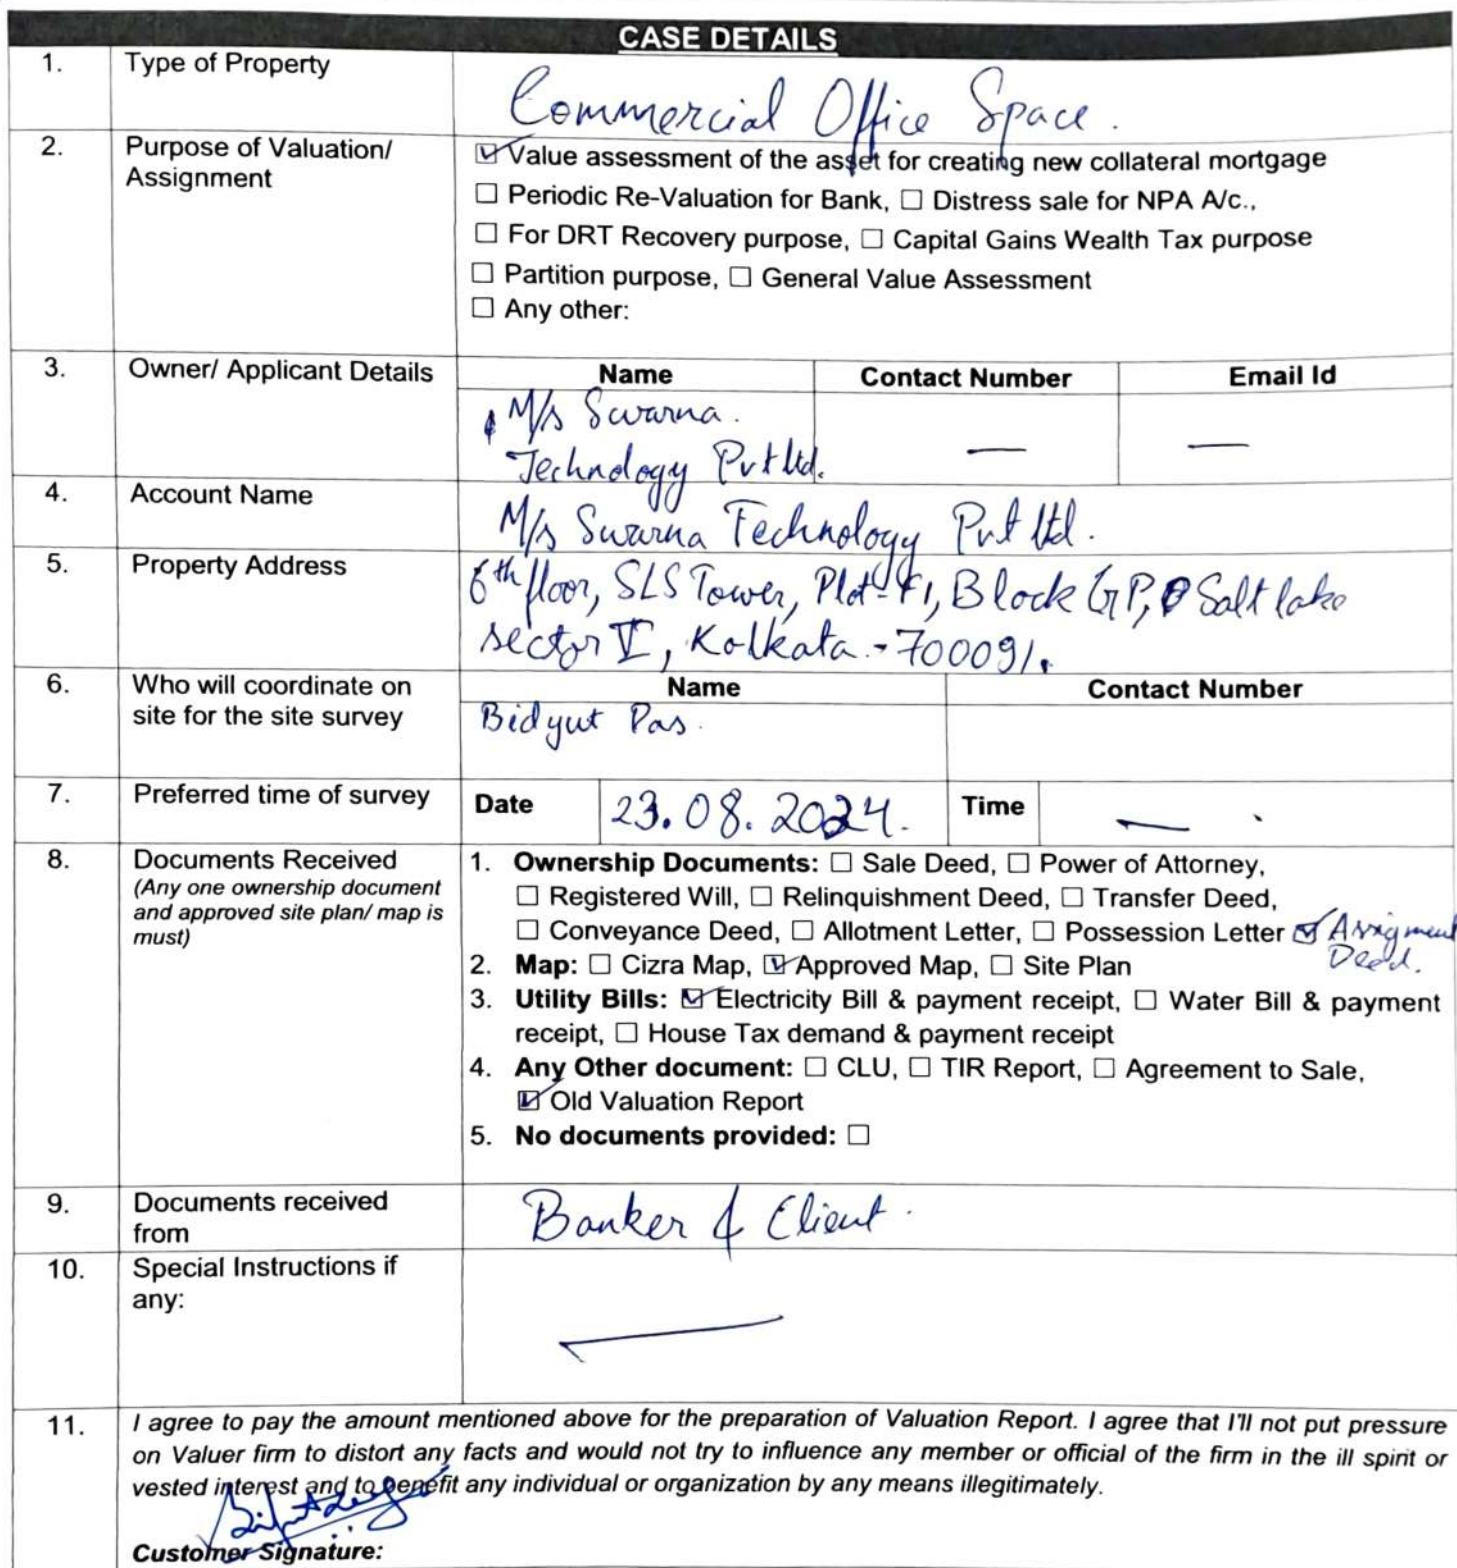 CASE DETAILS
1. Type of Property
Commercial Office Space.
2. Purpose of Valuation/ Assignment
☑ Value assessment of the asset for creating new collateral mortgage
☐ Periodic Re-Valuation for Bank, ☐ Distress sale for NPA A/c.,
☐ For DRT Recovery purpose, ☐ Capital Gains Wealth Tax purpose
☐ Partition purpose, ☐ General Value Assessment
☐ Any other:
3. Owner/ Applicant Details
Name Contact Number Email Id
M/s Swarna.
Technology Pvt Ltd. — —
4. Account Name
M/s Swarna Technology Pvt Ltd.
5. Property Address
6th floor, SLS Tower, Plot-F1, Block GP, Salt lake
sector V, Kolkata - 700091.
6. Who will coordinate on
site for the site survey
Name Contact Number
Bidyut Das.
7. Preferred time of survey
Date 23.08.2024. Time —
8. Documents Received
(Any one ownership document
and approved site plan/ map is
must)
1. Ownership Documents: ☐ Sale Deed, ☐ Power of Attorney,
☐ Registered Will, ☐ Relinquishment Deed, ☐ Transfer Deed,
☐ Conveyance Deed, ☐ Allotment Letter, ☐ Possession Letter ☑ Assigment
Deed.
2. Map: ☐ Cizra Map, ☑ Approved Map, ☐ Site Plan
3. Utility Bills: ☑ Electricity Bill & payment receipt, ☐ Water Bill & payment
receipt, ☐ House Tax demand & payment receipt
4. Any Other document: ☐ CLU, ☐ TIR Report, ☐ Agreement to Sale,
☑ Old Valuation Report
5. No documents provided: ☐
9. Documents received
from
Banker & Client.
10. Special Instructions if
any:
—
11. I agree to pay the amount mentioned above for the preparation of Valuation Report. I agree that I'll not put pressure
on Valuer firm to distort any facts and would not try to influence any member or official of the firm in the ill spirit or
vested interest and to benefit any individual or organization by any means illegitimately.
Customer Signature: